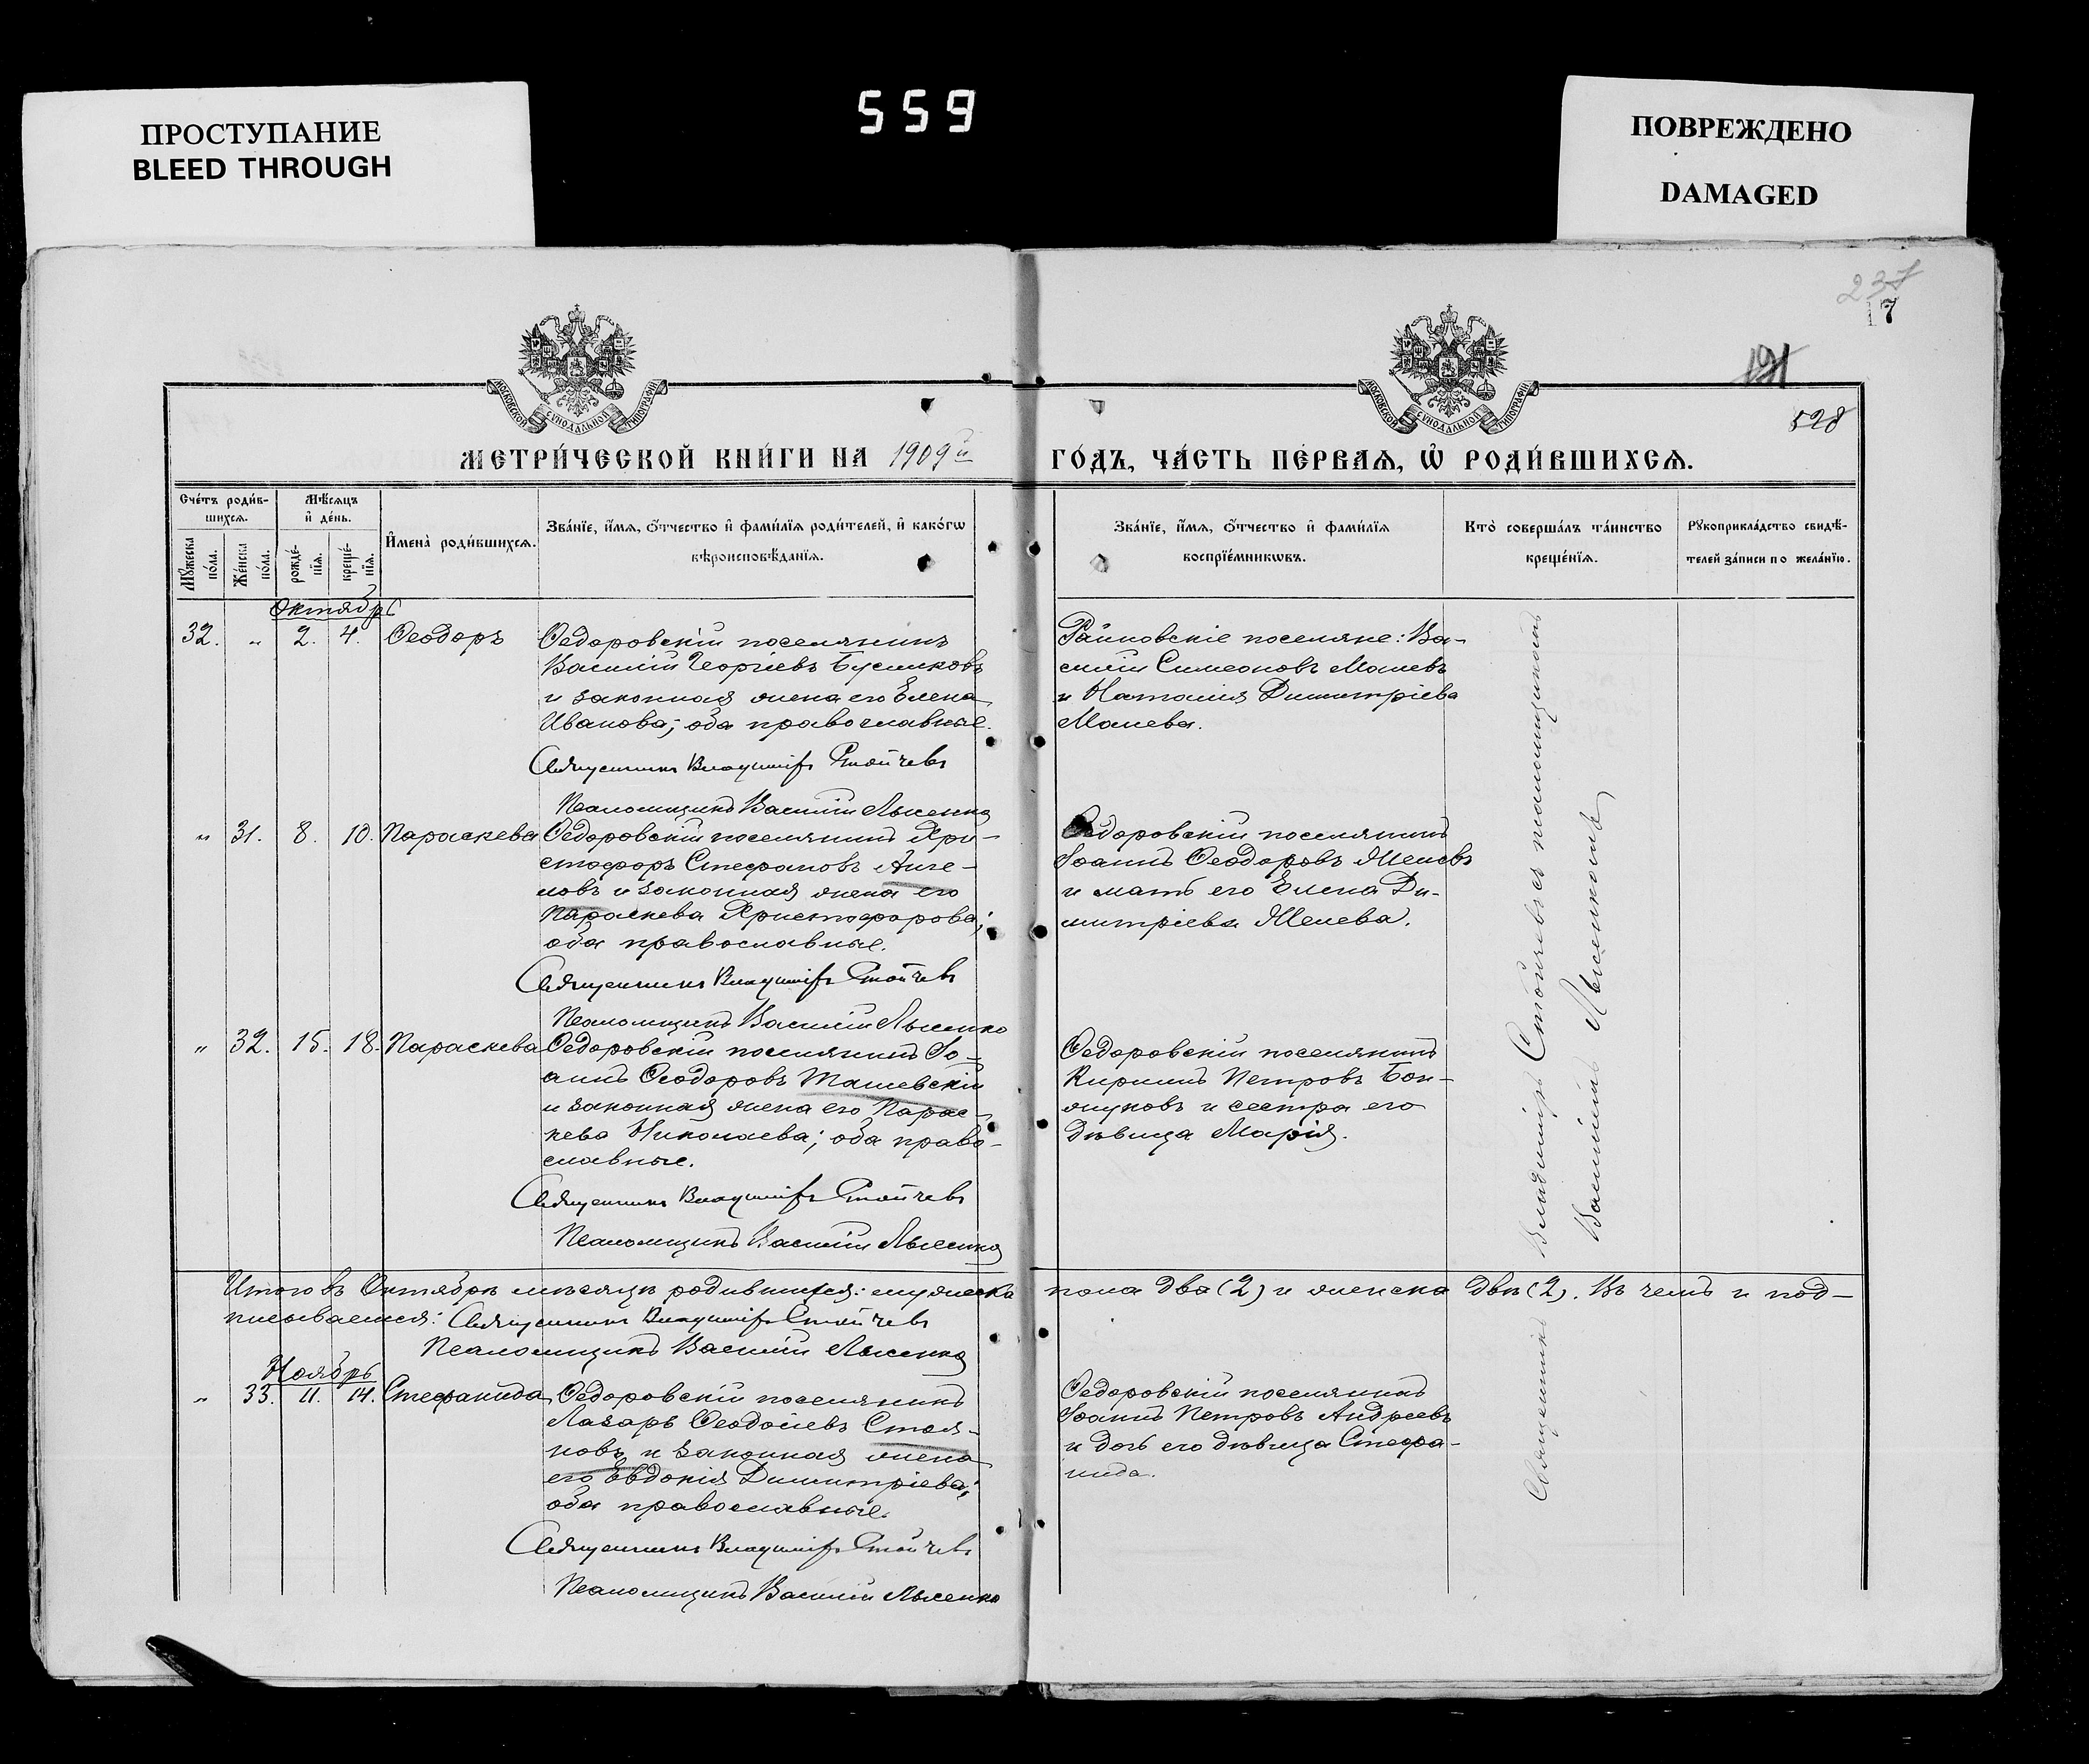 ПРОСТУПАНИЕ
BLEED THROUGH
559
ПОВРЕЖДЕНО
DAMAGED
237
17
191
528
МОСКОВСКОЙ СѴНОДАЛЬНОЙ ТИПОГРАФІИ
МОСКОВСКОЙ СѴНОДАЛЬНОЙ ТИПОГРАФІИ
МЕТРИ́ЧЕСКОЙ КНИ́ГИ НА 1909й ГО́ДЪ, ЧА́СТЬ ПЕ́РВАѦ, Ѡ҆ РОДИ́ВШИХСѦ.
Сче́тъ роди́в-
шихсѧ.
Мꙋ́жеска по́ла.
Же́нска по́ла.
Мѣ́сѧцъ
и҆ де́нь.
рожде́-
нїѧ.
креще́-
нїѧ.
И҆мена̀ роди́вшихсѧ.
Зва́нїе, и҆́мѧ, ѻ҆́тчество и҆ фами́лїѧ роди́телей, и҆ како́гѡ
вѣроисповѣ́данїѧ.
Зва́нїе, и҆́мѧ, ѻ҆́тчество и҆ фами́лїѧ
воспрїе́мникѡвъ.
Кто̀ соверша́лъ та́инство
креще́нїѧ.
Рꙋкоприкла́дство свидѣ́-
телей за́писи по жела́нїю.
Октябрь
32. " 2. 4. Ѳеодоръ
Ѳедоровскій поселянинъ
Василій Георгіевъ Бусликовъ
и законная жена его Елена
Иванова; оба православные.
Священникъ Владиміръ Стойчевъ
Псаломщикъ Василій Лысенко
Райновскіе поселяне: Ва-
силій Симеоновъ Малевъ
и Наталія Димитріева
Малева.
" 31. 8. 10. Параскева
Ѳедоровскій поселянинъ Хри-
стофоръ Стефановъ Анге-
ловъ и законная жена его
Параскева Христофорова;
оба православные.
Священникъ Владиміръ Стойчевъ
Псаломщикъ Василій Лысенко
Ѳедоровскій поселянинъ
Іоаннъ Ѳеодоровъ Желевъ
и мать его Елена Ди-
митріева Желева.
" 32. 15. 18. Параскева
Ѳедоровскій поселянинъ Іо-
аннъ Ѳеодоровъ Ташевскій
и законная жена его Парас-
кева Николаева; оба право-
славные.
Священникъ Владиміръ Стойчевъ
Псаломщикъ Василій Лысенко
Ѳедоровскій поселянинъ
Кириллъ Петровъ Бон-
жуковъ и сестра его
дѣвица Марія.
Итого въ Октябрѣ мѣсяцѣ родившихся: мужеска пола два (2) и женска двѣ (2). Въ чемъ и под-
писываемся: Священникъ Владиміръ Стойчевъ
Псаломщикъ Василій Лысенко
Ноябрь
" 33. 11. 14. Стефанида
Ѳедоровскій поселянинъ
Лазарь Ѳеодосіевъ Стоя-
новъ и законная жена
его Евдокія Димитріева;
оба православные.
Священникъ Владиміръ Стойчевъ
Псаломщикъ Василій Лысенко
Ѳедоровскій поселянинъ
Іоаннъ Петровъ Андреевъ
и дочь его дѣвица Стефа-
нида.
Священникъ Владиміръ Стойчевъ съ псаломщикомъ
Василіемъ Лысенкомъ